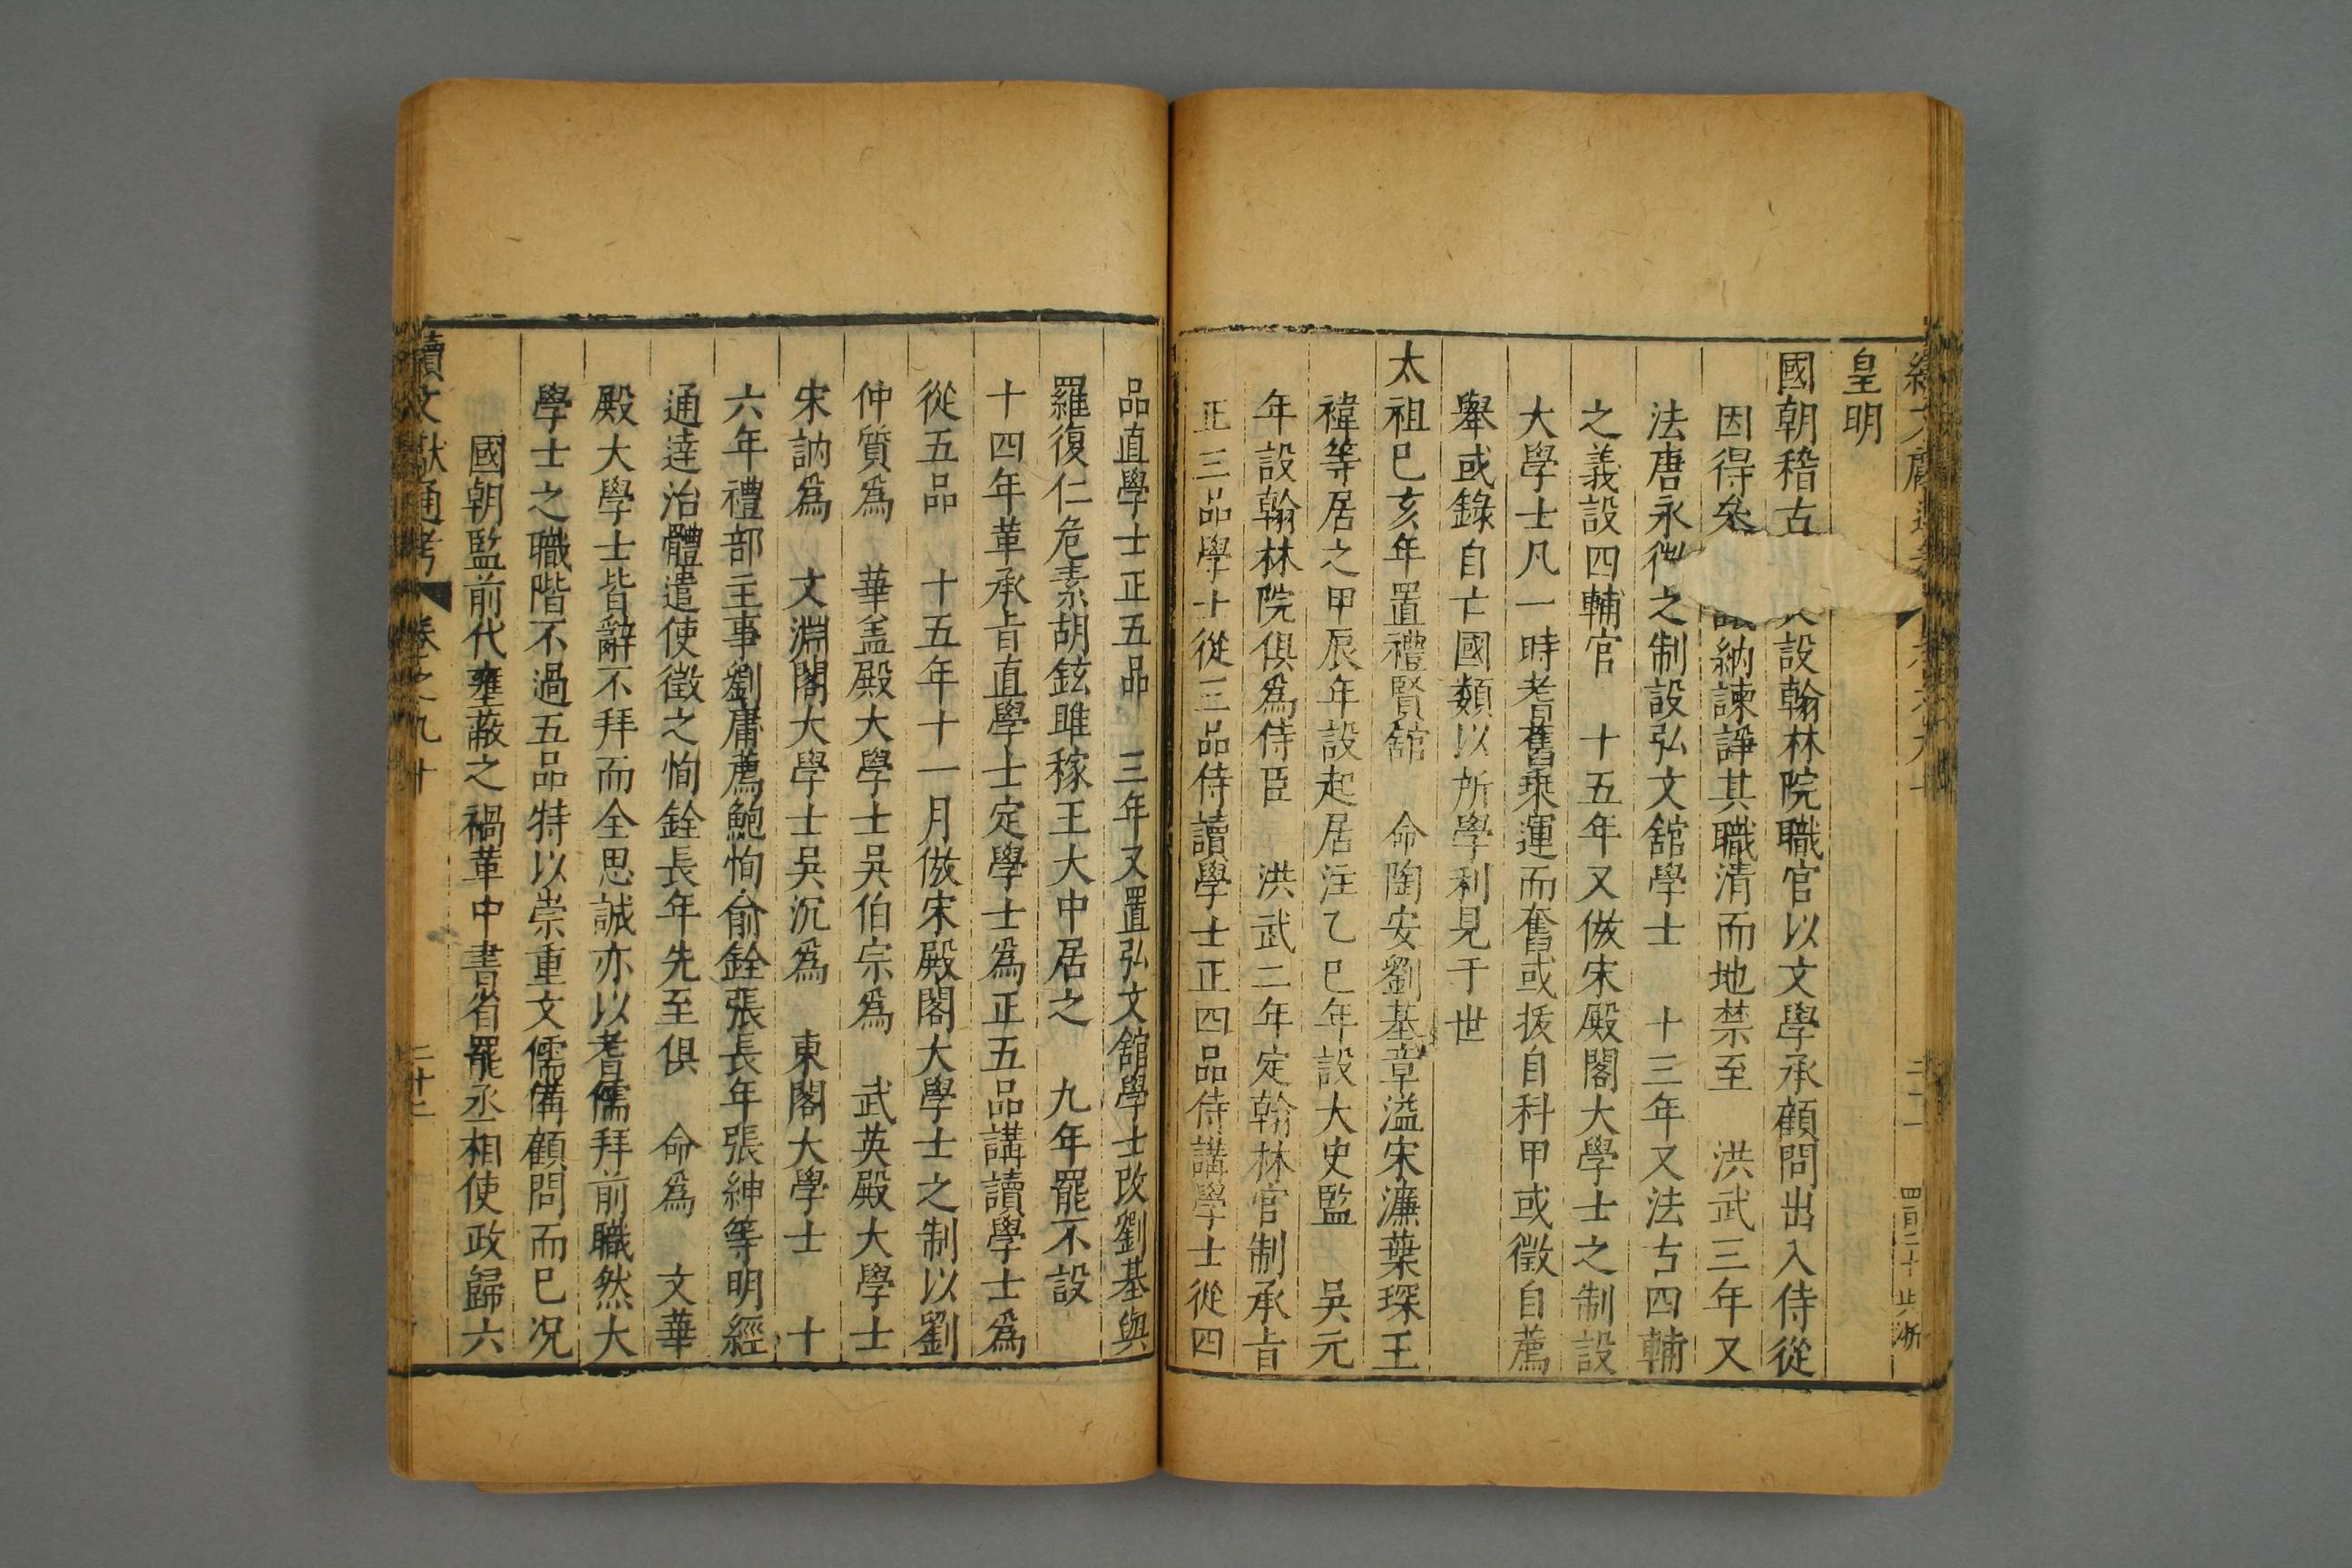 皇明
國朝稽古設翰林院職官以文學承顧問出入侍從
因得叅納諫諍其職清而地禁至 洪武三年又
法唐永徽之制設弘文舘學士 十三年又法古四輔
之義設四輔官 十五年又倣宋殿閣大學士之制設
大學士凡一時耆舊乗運而奮或拔自科甲或徵自薦
舉或錄自亡國類以所學利見于世
太祖巳亥年置禮賢舘 命陶安劉基章溢宋濂葉琛王
褘等居之甲辰年設起居注乙巳年設大史監 吳元
年設翰林院俱爲侍臣 洪武二年定翰林官制承㫖
正三品學士從三品侍讀學士正四品侍講學士從四
品直學士正五品 三年又置弘文舘學士改劉基與
羅復仁危素胡鉉睢稼王大中居之 九年罷不設
十四年革承㫖直學士定學士爲正五品講讀學士爲
從五品 十五年十一月倣宋殿閣大學士之制以劉
仲質爲 華盖殿大學士吳伯宗爲 武英殿大學士
宋訥爲 文淵閣大學士吳沉爲 東閣大學士 十
六年禮部主事劉庸薦鮑恂俞銓張長年張紳等明經
通逹治體遣使徵之恂銓長年先至俱 命爲 文華
殿大學士皆辭不拜而全思誠亦以耆儒拜前職然大
學士之職階不過五品特以崇重文儒備顧問而巳况
國朝監前代壅蔽之禍革中書省罷丞相使政歸六
續文獻通考 卷之九十 二十二